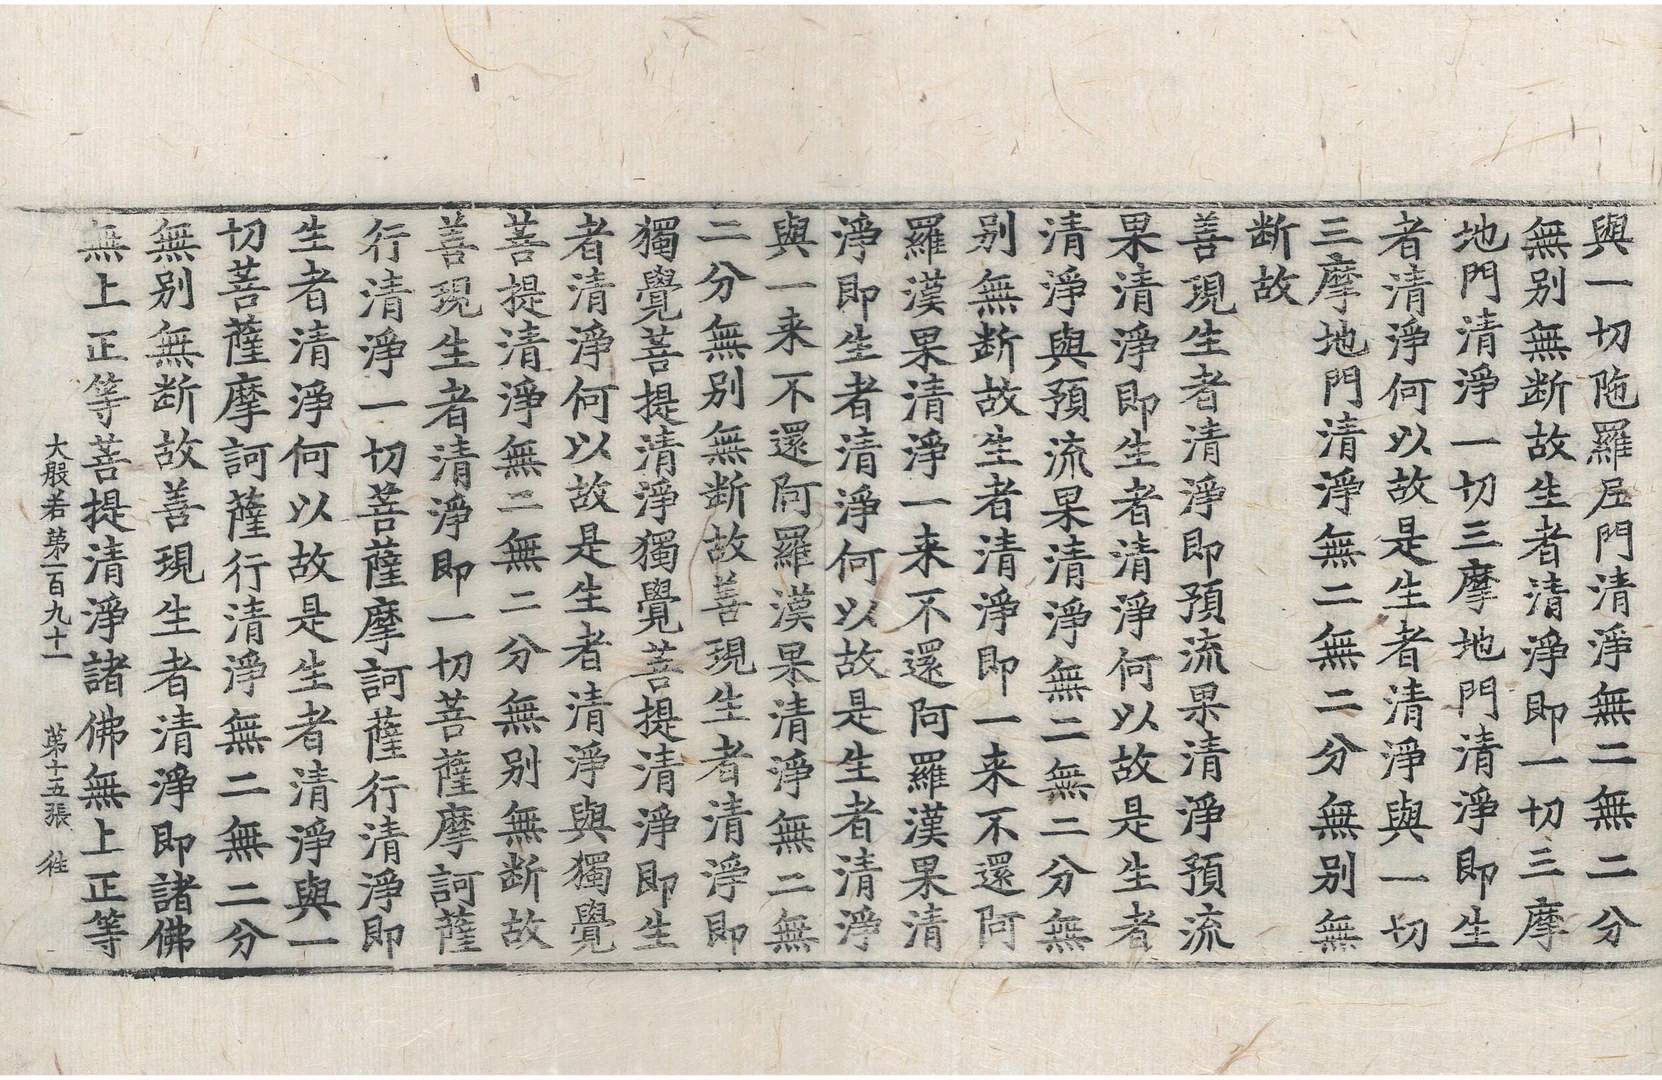 與一切陁羅尼門清淨無二無二分
無別無断故生者清淨即一切三摩
地門清淨一切三摩地門清淨即生
者清淨何以故是生者清淨與一切
三摩地門清淨無二無二分無別無
断故
善現生者清淨即預流果清淨預流
果清淨即生者清淨何以故是生者
清淨與預流果清淨無二無二分無
別無断故生者清淨即一来不還阿
羅漢果清淨一来不還阿羅漢果清
淨即生者清淨何以故是生者清淨
與一来不還阿羅漢果清淨無二無
二分無別無断故善現生者清淨即
獨覺菩提清淨獨覺菩提清淨即生
者清淨何以故是生者清淨與獨覺
菩提清淨無二無二分無別無断故
善現生者清淨即一切菩薩摩訶薩
行清淨一切菩薩摩訶薩行清淨即
生者清淨何以故是生者清淨與一
切菩薩摩訶薩行清淨無二無二分
無別無断故善現生者清淨即諸佛
無上正等菩提清淨諸佛無上正等
大般若第一百九十一 第十五張 往